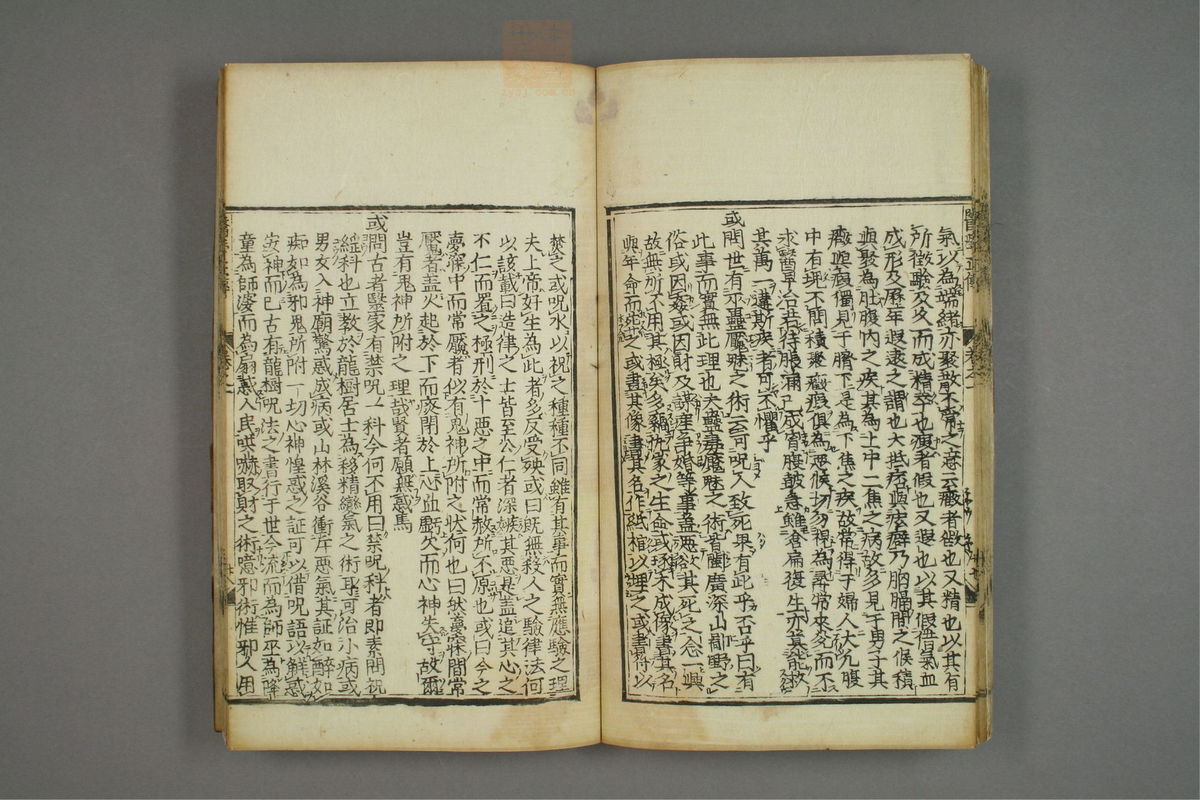 氣以為端緒亦聚散不常之意云癥者徵也又精也以其有
所徵驗及久而成精萃也瘕者假也又遐也以其假借氣血
成形及歷年遐遠之謂也大抵痞與痃癖乃胸膈間之候積
與聚為肚腹內之疾其為上中二焦之病故多見于男子其
癥與瘕獨見于臍下是為下焦之疾故常得于婦人大凡腹
中有塊不問積聚癥瘕俱為惡候切勿視為尋常來多而不
求醫早治若待脹滿已成胷腹鼓急雖倉扁復生亦莫能救
其萬一遘斯疾者可不懼乎
或問世有巫蠱魘魅之術云可呪人致死果有此乎否乎曰有
此事而實無此理也夫蠱毒魘魅之術皆閩廣深山鄙野之
俗或因姦或因財及誹產爭婚等事蓋惡欲其死之念一興
故無所不用其極矣多竊於家之生命或琢木成像書其名
與年命而死之或畫其像書其名作紙棺以埋之或書符以
焚之或呪水以祝之種種不同雖有其事而實無應驗之理
夫上帝好生為此者多反受殃或曰既無殺人之驗律法何
以該載曰造律之士皆至公仁者深嫉其惡是蓋追其心之
不仁而置之極刑於十惡之中而常赦所不原也或曰今之
夢寐中而常魘者似有鬼神所附之狀何也曰然夢寐間常
魘者蓋火起於下而痰閉於上心血虧欠而心神失守故爾
豈有鬼神所附之理哉賢者願無惑焉
或問古者醫家有禁呪一科今何不用曰禁呪科者即素問祝
繇科也立教於龍樹居士為移精變氣之術耳可治小病或
男女入神廟驚惑成病或山林溪谷衝斥惡氣其証如醉如
痴如為邪鬼所附一切心神惶惑之証可以借呪語以解惑
安神而已古有龍樹呪法之書行于世今流而為師巫為降
童為師婆而為扇惑人民哄嚇取財之術噫邪術惟邪人用
醫學正傳
卷之一